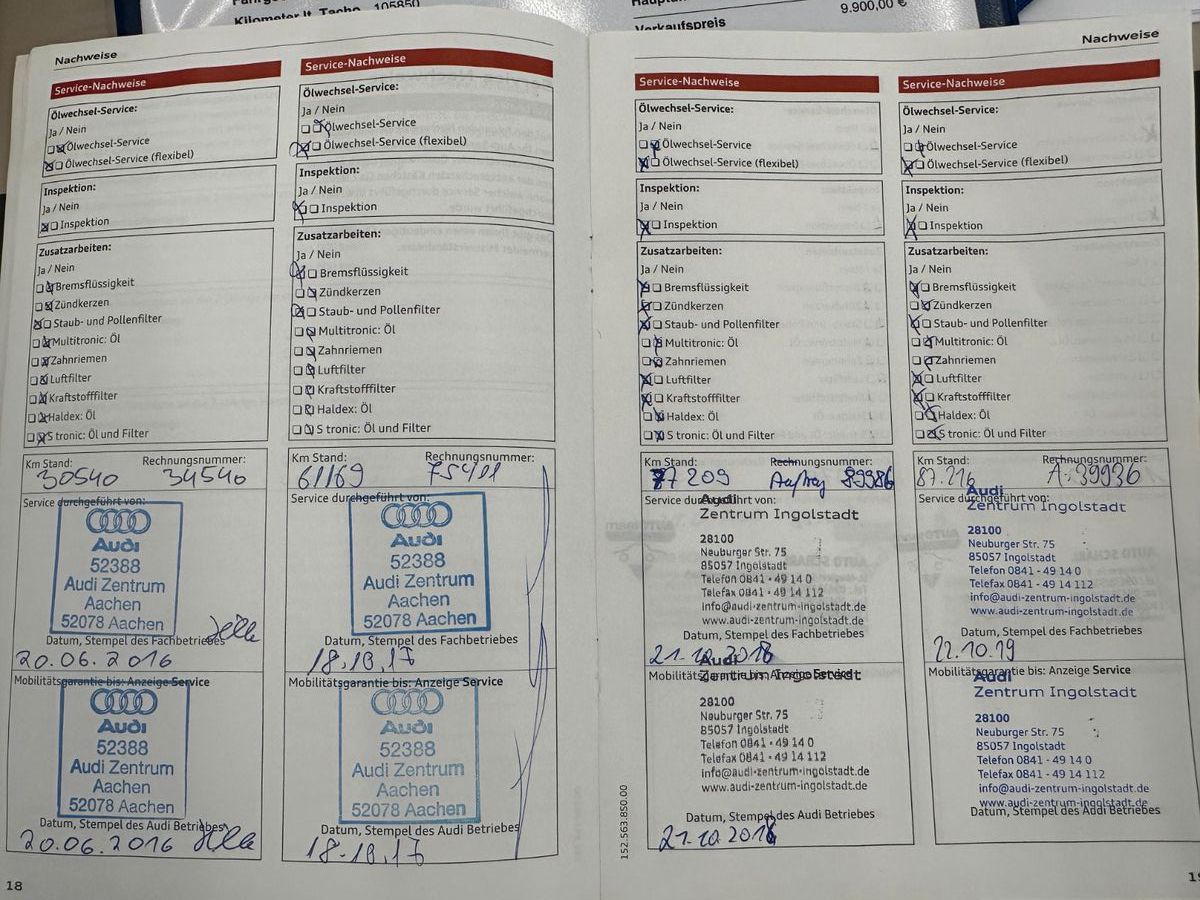 Kilometer lt. Tacho 105850
9.900,00 €
Verkaufspreis
Nachweise
Service-Nachweise
Ölwechsel-Service:
Ja / Nein
Ölwechsel-Service
Ölwechsel-Service (flexibel)
Inspektion:
Ja / Nein
Inspektion
Zusatzarbeiten:
Ja / Nein
Bremsflüssigkeit
Zündkerzen
Staub- und Pollenfilter
Multitronic: Öl
Zahnriemen
Luftfilter
Kraftstofffilter
Haldex: Öl
S tronic: Öl und Filter
Km Stand: Rechnungsnummer:
30540 34540
Service durchgeführt von:
Audi
52388
Audi Zentrum
Aachen
52078 Aachen
Datum, Stempel des Fachbetriebes
20.06.2016
Mobilitätsgarantie bis: Anzeige Service
Audi
52388
Audi Zentrum
Aachen
52078 Aachen
Datum, Stempel des Audi Betriebes
20.06.2016
18
Service-Nachweise
Ölwechsel-Service:
Ja / Nein
Ölwechsel-Service
Ölwechsel-Service (flexibel)
Inspektion:
Ja / Nein
Inspektion
Zusatzarbeiten:
Ja / Nein
Bremsflüssigkeit
Zündkerzen
Staub- und Pollenfilter
Multitronic: Öl
Zahnriemen
Luftfilter
Kraftstofffilter
Haldex: Öl
S tronic: Öl und Filter
Km Stand: Rechnungsnummer:
61169 75411
Service durchgeführt von:
Audi
52388
Audi Zentrum
Aachen
52078 Aachen
Datum, Stempel des Fachbetriebes
18.10.17
Mobilitätsgarantie bis: Anzeige Service
Audi
52388
Audi Zentrum
Aachen
52078 Aachen
Datum, Stempel des Audi Betriebes
18.10.17
Nachweise
Service-Nachweise
Ölwechsel-Service:
Ja / Nein
Ölwechsel-Service
Ölwechsel-Service (flexibel)
Inspektion:
Ja / Nein
Inspektion
Zusatzarbeiten:
Ja / Nein
Bremsflüssigkeit
Zündkerzen
Staub- und Pollenfilter
Multitronic: Öl
Zahnriemen
Luftfilter
Kraftstofffilter
Haldex: Öl
S tronic: Öl und Filter
Km Stand: Rechnungsnummer:
77209 Auftrag 89986
Service durchgeführt von:
Audi
Zentrum Ingolstadt
28100
Neuburger Str. 75
85057 Ingolstadt
Telefon 0841 - 49 14 0
Telefax 0841 - 49 14 112
info@audi-zentrum-ingolstadt.de
www.audi-zentrum-ingolstadt.de
Datum, Stempel des Fachbetriebes
21.10.2018
Mobilitätsgarantie bis: Anzeige Service
Audi
Zentrum Ingolstadt
28100
Neuburger Str. 75
85057 Ingolstadt
Telefon 0841 - 49 14 0
Telefax 0841 - 49 14 112
info@audi-zentrum-ingolstadt.de
www.audi-zentrum-ingolstadt.de
Datum, Stempel des Audi Betriebes
21.10.2018
152.563.850.00
Service-Nachweise
Ölwechsel-Service:
Ja / Nein
Ölwechsel-Service
Ölwechsel-Service (flexibel)
Inspektion:
Ja / Nein
Inspektion
Zusatzarbeiten:
Ja / Nein
Bremsflüssigkeit
Zündkerzen
Staub- und Pollenfilter
Multitronic: Öl
Zahnriemen
Luftfilter
Kraftstofffilter
Haldex: Öl
S tronic: Öl und Filter
Km Stand: Rechnungsnummer:
87.216 A: 39936
Service durchgeführt von:
Audi
Zentrum Ingolstadt
28100
Neuburger Str. 75
85057 Ingolstadt
Telefon 0841 - 49 14 0
Telefax 0841 - 49 14 112
info@audi-zentrum-ingolstadt.de
www.audi-zentrum-ingolstadt.de
Datum, Stempel des Fachbetriebes
22.10.19
Mobilitätsgarantie bis: Anzeige Service
Audi
Zentrum Ingolstadt
28100
Neuburger Str. 75
85057 Ingolstadt
Telefon 0841 - 49 14 0
Telefax 0841 - 49 14 112
info@audi-zentrum-ingolstadt.de
www.audi-zentrum-ingolstadt.de
Datum, Stempel des Audi Betriebes